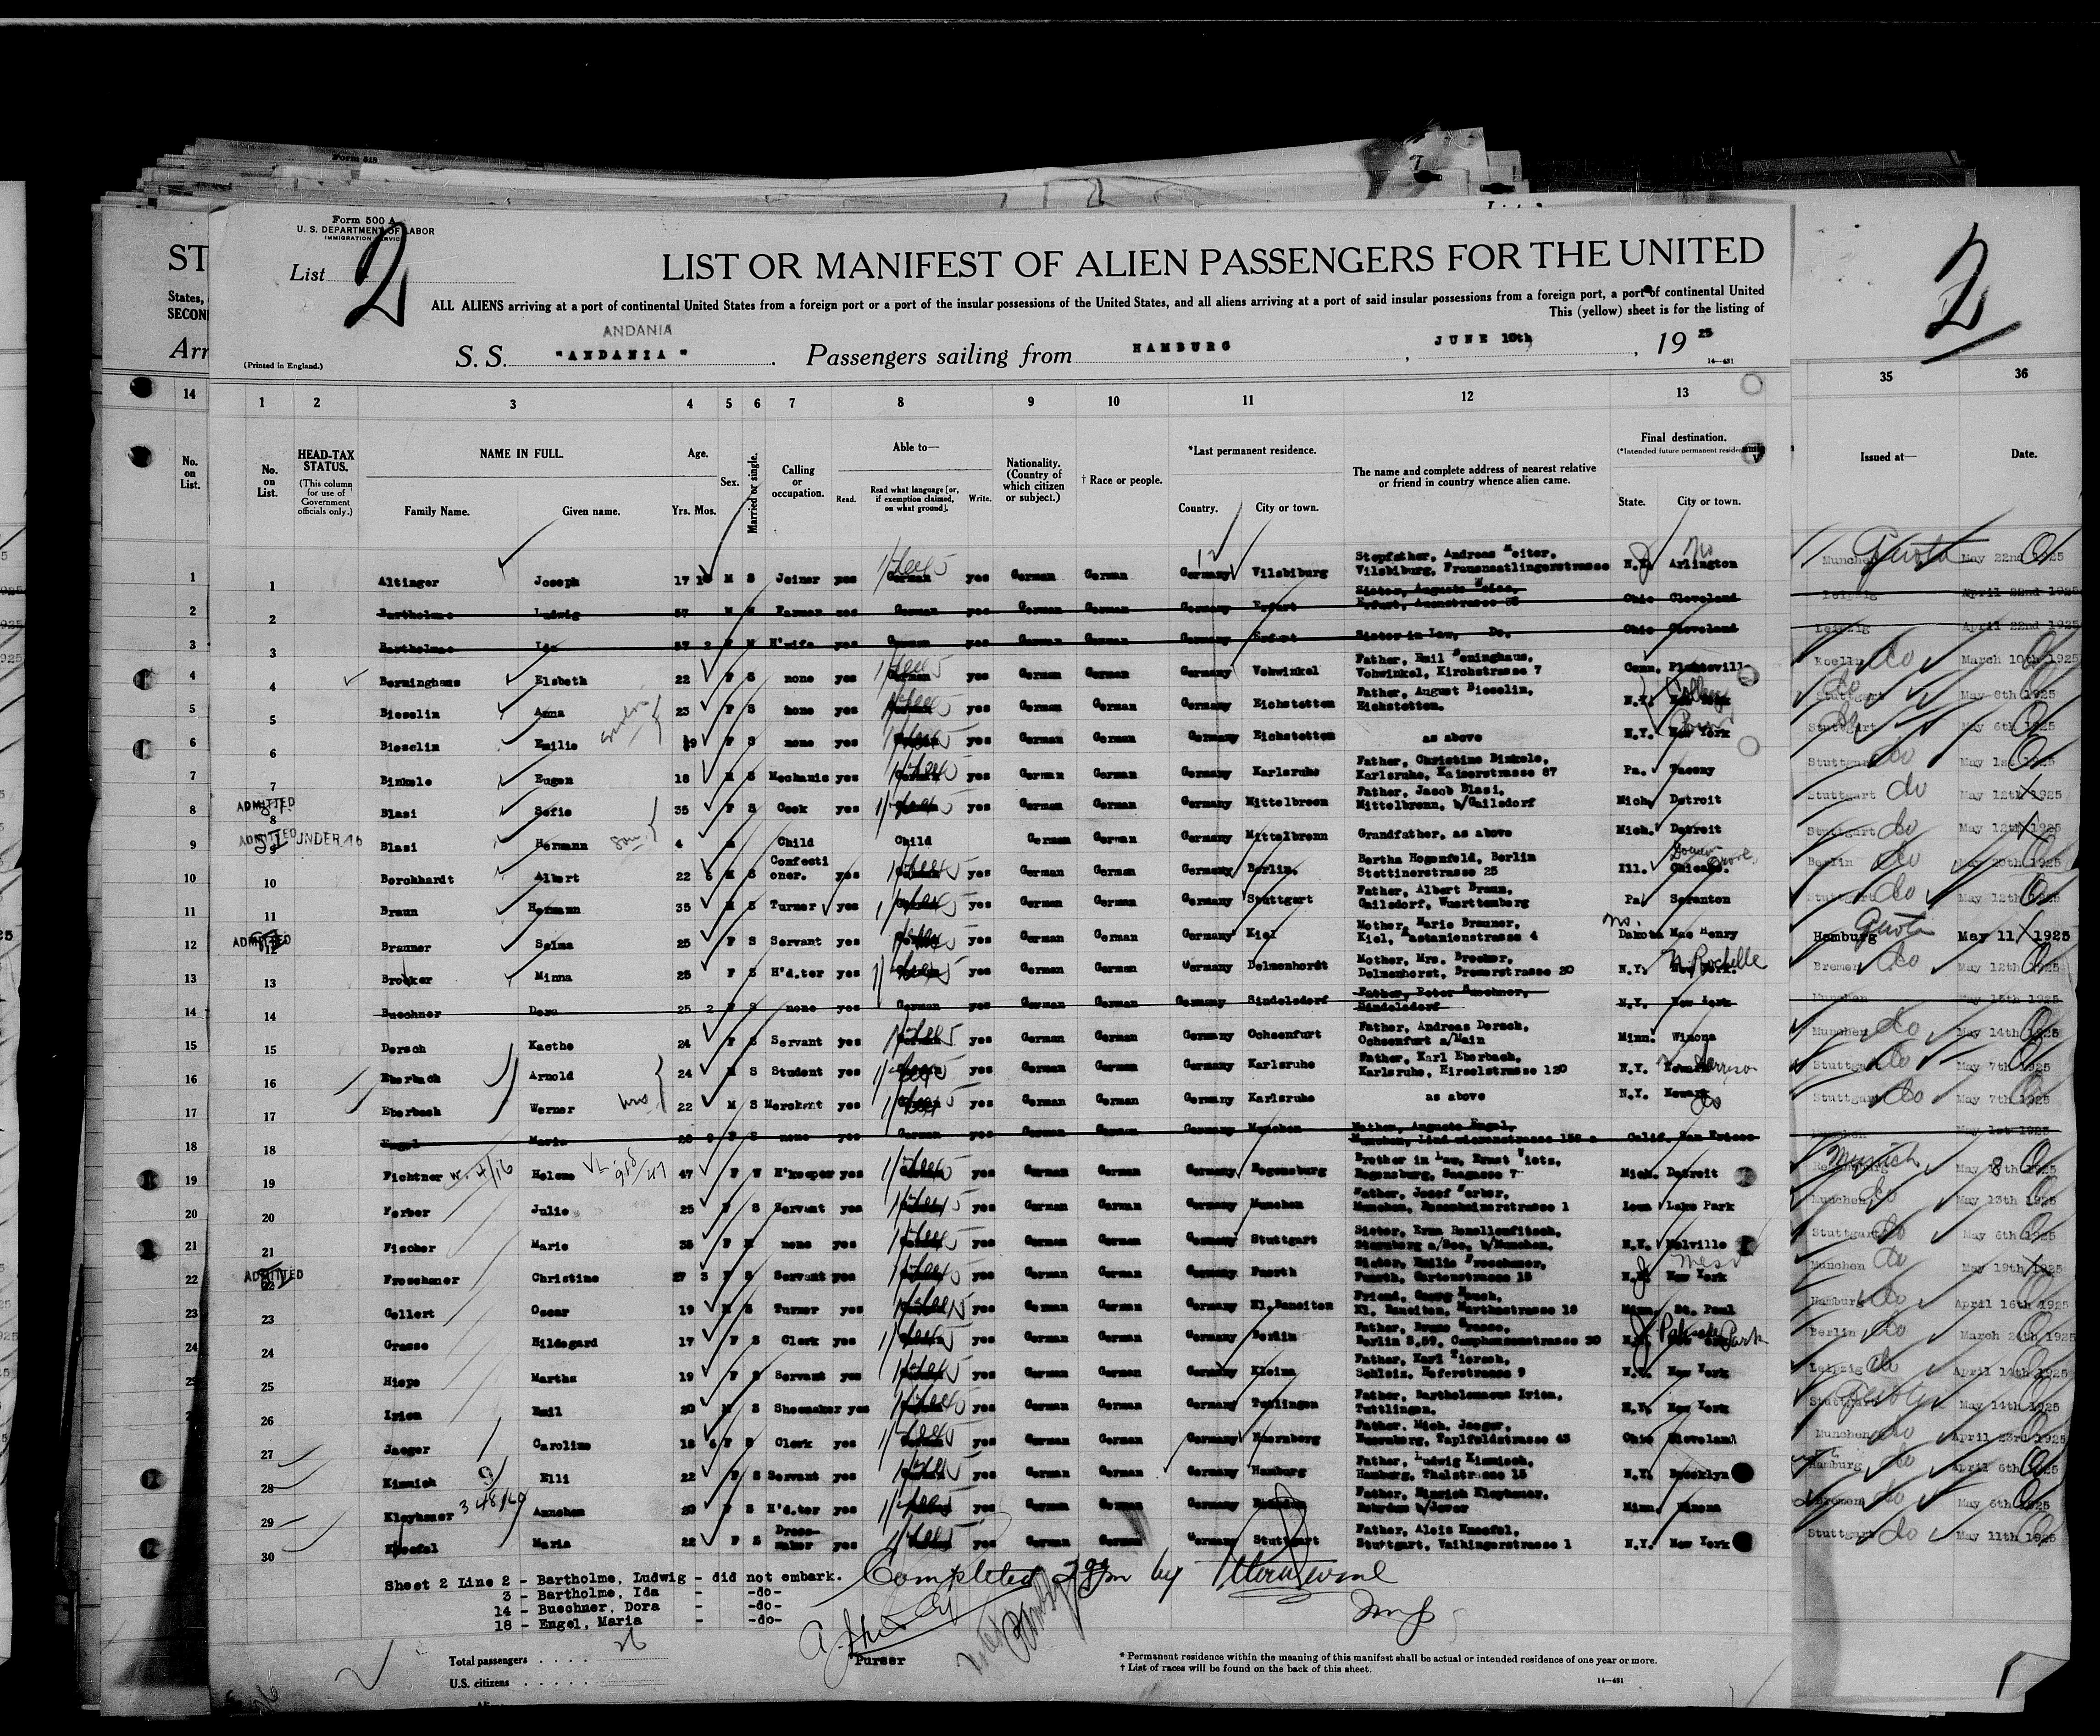 Form 518
Form 500 A
U. S. DEPARTMENT OF LABOR
IMMIGRATION SERVICE
List 2
LIST OR MANIFEST OF ALIEN PASSENGERS FOR THE UNITED
ALL ALIENS arriving at a port of continental United States from a foreign port or a port of the insular possessions of the United States, and all aliens arriving at a port of said insular possessions from a foreign port, a port of continental United
This (yellow) sheet is for the listing of
ANDANIA
S. S. "ANDANIA". Passengers sailing from HAMBURG, JUNE 10th, 19 25
(Printed in England.)
14—431
1 2 3 4 5 6 7 8 9 10 11 12 13
No. on List.
HEAD-TAX STATUS.
(This column for use of Government officials only.)
NAME IN FULL.
Family Name. Given name.
Age.
Yrs. Mos.
Sex.
Married or single.
Calling or occupation.
Able to—
Read. Read what language [or, if exemption claimed, on what ground]. Write.
Nationality. (Country of which citizen or subject.)
† Race or people.
*Last permanent residence.
Country. City or town.
The name and complete address of nearest relative or friend in country whence alien came.
Final destination.
(*Intended future permanent residence)
State. City or town.
1 Altinger Joseph 17 M S Joiner yes German yes German German Germany Vilsbiburg Stepfather, Andreas Vilsbiburg, N.J. Arlington
2 Bartholme Ludwig 57 M M Farmer yes German yes German German Germany Erfurt Sister, Auguste Erfurt, Ohio Cleveland
3 Bartholme Ida 57 2 F M H'wife yes German yes German German Germany Erfurt Sister in Law, Do. Ohio Cleveland
4 Berminghaus Elsbeth 22 F S none yes German yes German German Germany Vohwinkel Father, Emil Vohwinkel, Kirchstrasse 7 Conn.
5 Bieselin Anna 23 F S none yes German yes German German Germany Eichstetten Father, August Bieselin, Eichstetten. N.Y. New York
6 Bieselin Emilie 19 F S none yes German yes German German Germany Eichstetten as above N.Y. New York
7 Binkele Eugen 18 M S Mechanic yes German yes German German Germany Karlsruhe Father, Christine Binkele, Karlsruhe, Kaiserstrasse 87 Pa. Tacony
8 ADMITTED Blasi Sofie 35 F S Cook yes German yes German German Germany Mittelbronn Father, Jacob Blasi, Mittelbronn, b/Gaildorf Mich. Detroit
9 ADMITTED UNDER 16 Blasi Hermann son 4 m Child Child German German Germany Mittelbronn Grandfather, as above Mich. Detroit
10 Borckhardt Albert 22 6 M S Confectioner. yes German yes German German Germany Berlin. Bertha Hogenfeld, Berlin Stettinerstrasse 25 Ill. Chicago.
11 Braun Hermann 35 M S Turner yes German yes German German Germany Stuttgart Father, Albert Braun, Gaildorf, Wuerttemberg Pa. Scranton
12 ADMITTED Brauner Selma 25 F S Servant yes German yes German German Germany Kiel Mother, Marie Brauner, Kiel, Kastanienstrasse 4 no. Dakota Mac Henry
13 Broeker Minna 25 F S H'd.ter yes German yes German German Germany Delmenhordt Mother, Mrs. Broeker, Delmenhorst, Bremerstrasse 20 N.Y. N Rochelle
14 Buechner Dora 25 2 F S none yes German yes German German Germany Sindelsdorf Father, Peter Buechner, Sindelsdorf N.Y. New York
15 Dersch Kaethe 24 F S Servant yes German yes German German Germany Ochsenfurt Father, Andreas Dersch, Ochsenfurt a/Main Minn. Winona
16 Eberbach Arnold 24 M S Student yes German yes German German Germany Karlsruhe Father, Karl Eberbach, Karlsruhe, Hirselstrasse 120 N.Y. Newark Harrison
17 Eberbach Werner 22 M S Merchant yes German yes German German Germany Karlsruhe as above N.Y. Newark do
18 Engel Maria F S none yes German yes German German Germany Munchen Mother, Auguste Engel, Munchen, Calif. San Frisco
19 Fichtner Helene 47 F W H'keeper yes German yes German German Germany Regensburg Brother in Law, Ernst Regensburg, 7 Mich. Detroit
20 Ferber Julie 25 F S Servant yes German yes German German Germany Munchen Father, Josef Ferber, Munchen, Rosenheimerstrasse 1 Iowa Lake Park
21 Fischer Marie 35 F M none yes German yes German German Germany Stuttgart Sister, Erna Starnberg a/See, b/Munchen. N.Y. Melville
22 ADMITTED Froschauer Christine 27 3 F S Servant yes German yes German German Germany Fuerth Sister, Emilie Froschauer, Fuerth, Gartenstrasse 15 N.J. New York
23 Gellert Oscar 19 M S Turner yes German yes German German Germany Friend, Georg Marthastrasse 16 Minn. St. Paul
24 Grasse Hildegard 17 F S Clerk yes German yes German German Germany Berlin Father, Bruno Grasse, Berlin S,59, Camphausenstrasse 20 Park
25 Martha 19 F S Servant yes German yes German German Germany Father, Karl Schleiz, Hoferstrasse 9 N.Y. New York
26 Irion Emil 20 M S Shoemaker yes German yes German German Germany Tuttlingen Father, Bartholomaeus Irion, Tuttlingen. N.Y. New York
27 Jaeger Caroline 18 6 F S Clerk yes German yes German German Germany Nuernberg Father, Mich. Jaeger, Nuernberg, Ohio Cleveland
28 Kimmich Elli 22 F S Servant yes German yes German German Germany Hamburg Father, Ludwig Kimmich, Hamburg, Thalstrasse 15 N.Y. Brooklyn
29 Kleyhauer Annchen 20 F S H'd.ter yes German yes German German Germany Father, Hinrich Kleyhauer, b/Jever Minn. Winona
30 Knoefel Maria 22 F S Dressmaker yes German yes German German Germany Stuttgart Father, Alois Knoefel, Stuttgart, Vaihingerstrasse 1 N.Y. New York
Sheet 2 Line 2 - Bartholme, Ludwig - did not embark.
3 - Bartholme, Ida - -do-
14 - Buechner, Dora - -do-
18 - Engel, Maria - -do-
Completed by
Purser
Total passengers . . . . 26
U.S. citizens . . . . .
* Permanent residence within the meaning of this manifest shall be actual or intended residence of one year or more.
† List of races will be found on the back of this sheet.
14—431
ST
States,
SECON
Arr
14
No. on List.
2
35 36
Issued at— Date.
Munchen Quota May 22nd 1925
Leipzig April 22nd 1925
Leipzig April 22nd 1925
Koeln do March 10th 1925
Stuttgart do May 8th 1925
Stuttgart do May 6th 1925
Stuttgart do May 1st 1925
Stuttgart do May 12th 1925
Stuttgart do May 12th 1925
Berlin do May 20th 1925
Stuttgart do May 12th 1925
Hamburg Quota May 11 1925
Bremen do May 12th 1925
Munchen May 15th 1925
Munchen do May 14th 1925
Stuttgart do May 7th 1925
Stuttgart do May 7th 1925
Munchen May 1st 1925
Munich May 8th 1925
Munchen do May 13th 1925
Stuttgart do May 6th 1925
Munchen do May 19th 1925
Hamburg do April 16th 1925
Berlin do March 1925
Leipzig do April 14th 1925
Stuttgart May 14th 1925
Munchen do April 23rd 1925
Hamburg do April 6th 1925
Bremen do May 6th 1925
Stuttgart do May 11th 1925